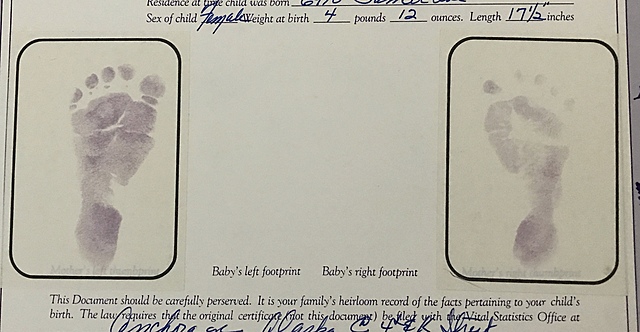 Residence at time child was born
Sex of child female Weight at birth 4 pounds 12 ounces. Length 17½" inches
Mother's left thumbprint
Mother's right thumbprint
Baby's left footprint Baby's right footprint
This Document should be carefully perserved. It is your family's heirloom record of the facts pertaining to your child's
birth. The law requires that the original certificate (not this document) be filed with the Vital Statistics Office at
Anchorage Alaska @ 4th &